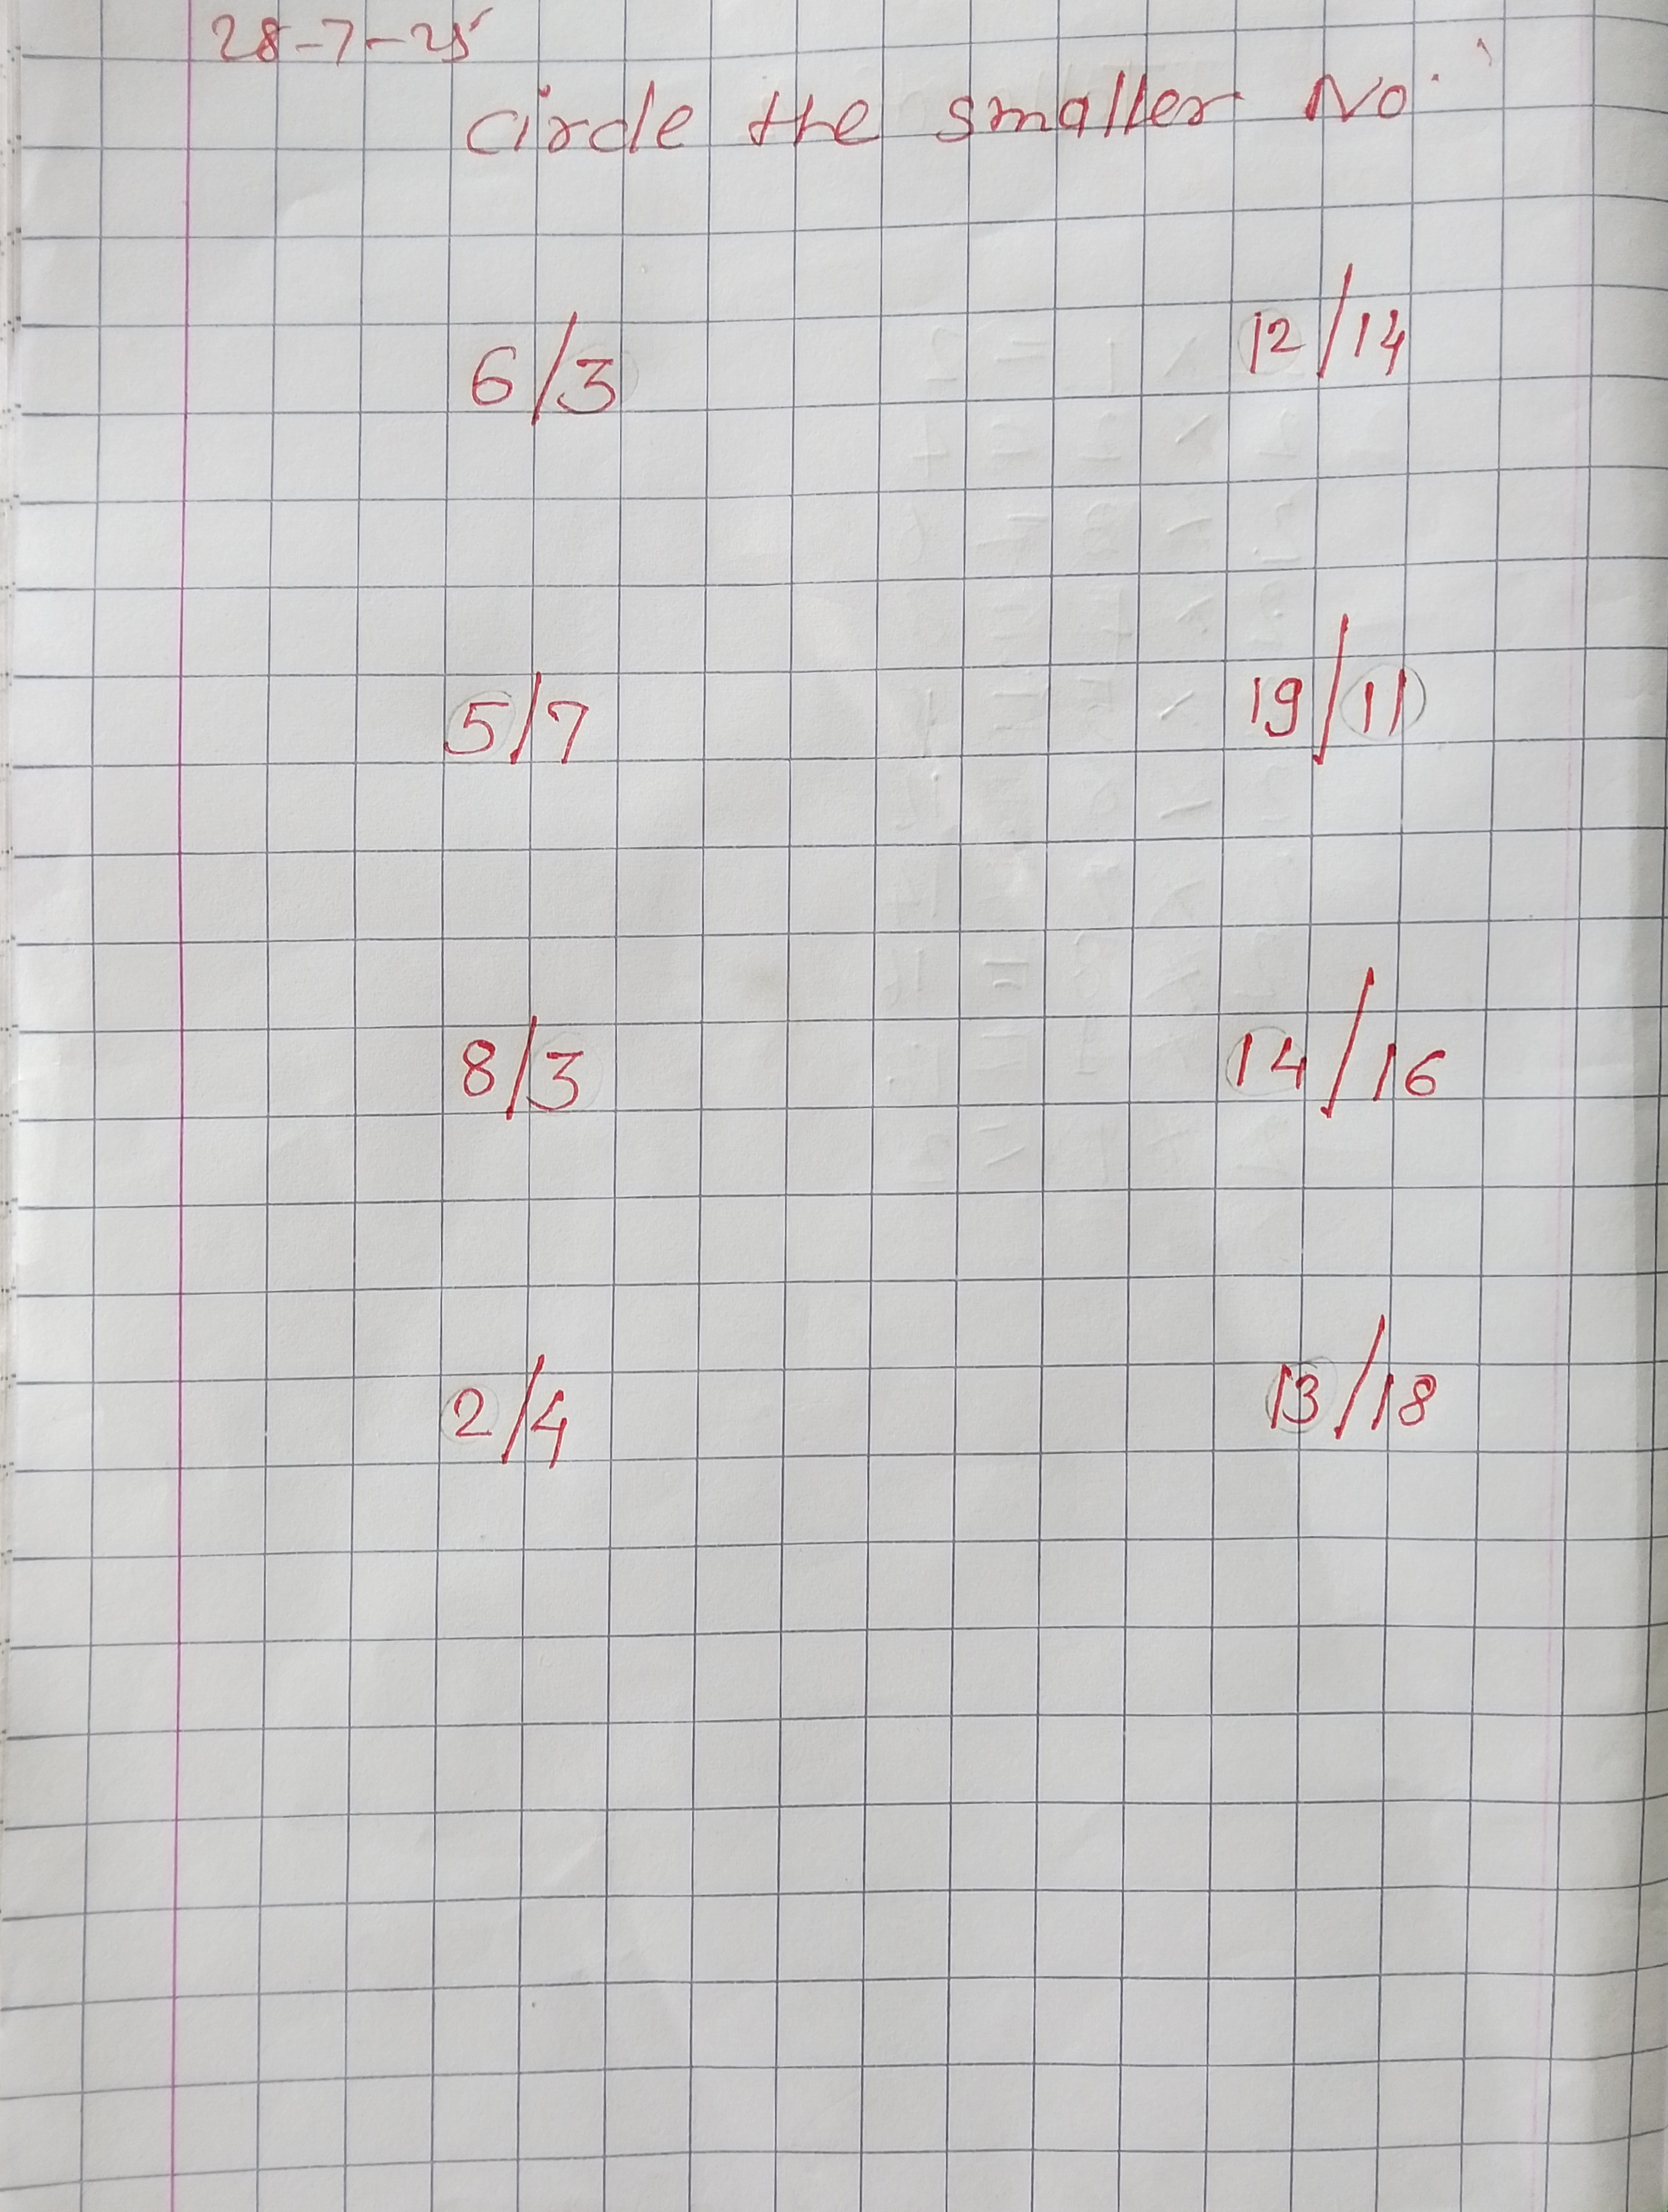 28-7-25
circle the smaller No.
6/3 12/14
5/7 19/11
8/3 14/16
2/4 13/18